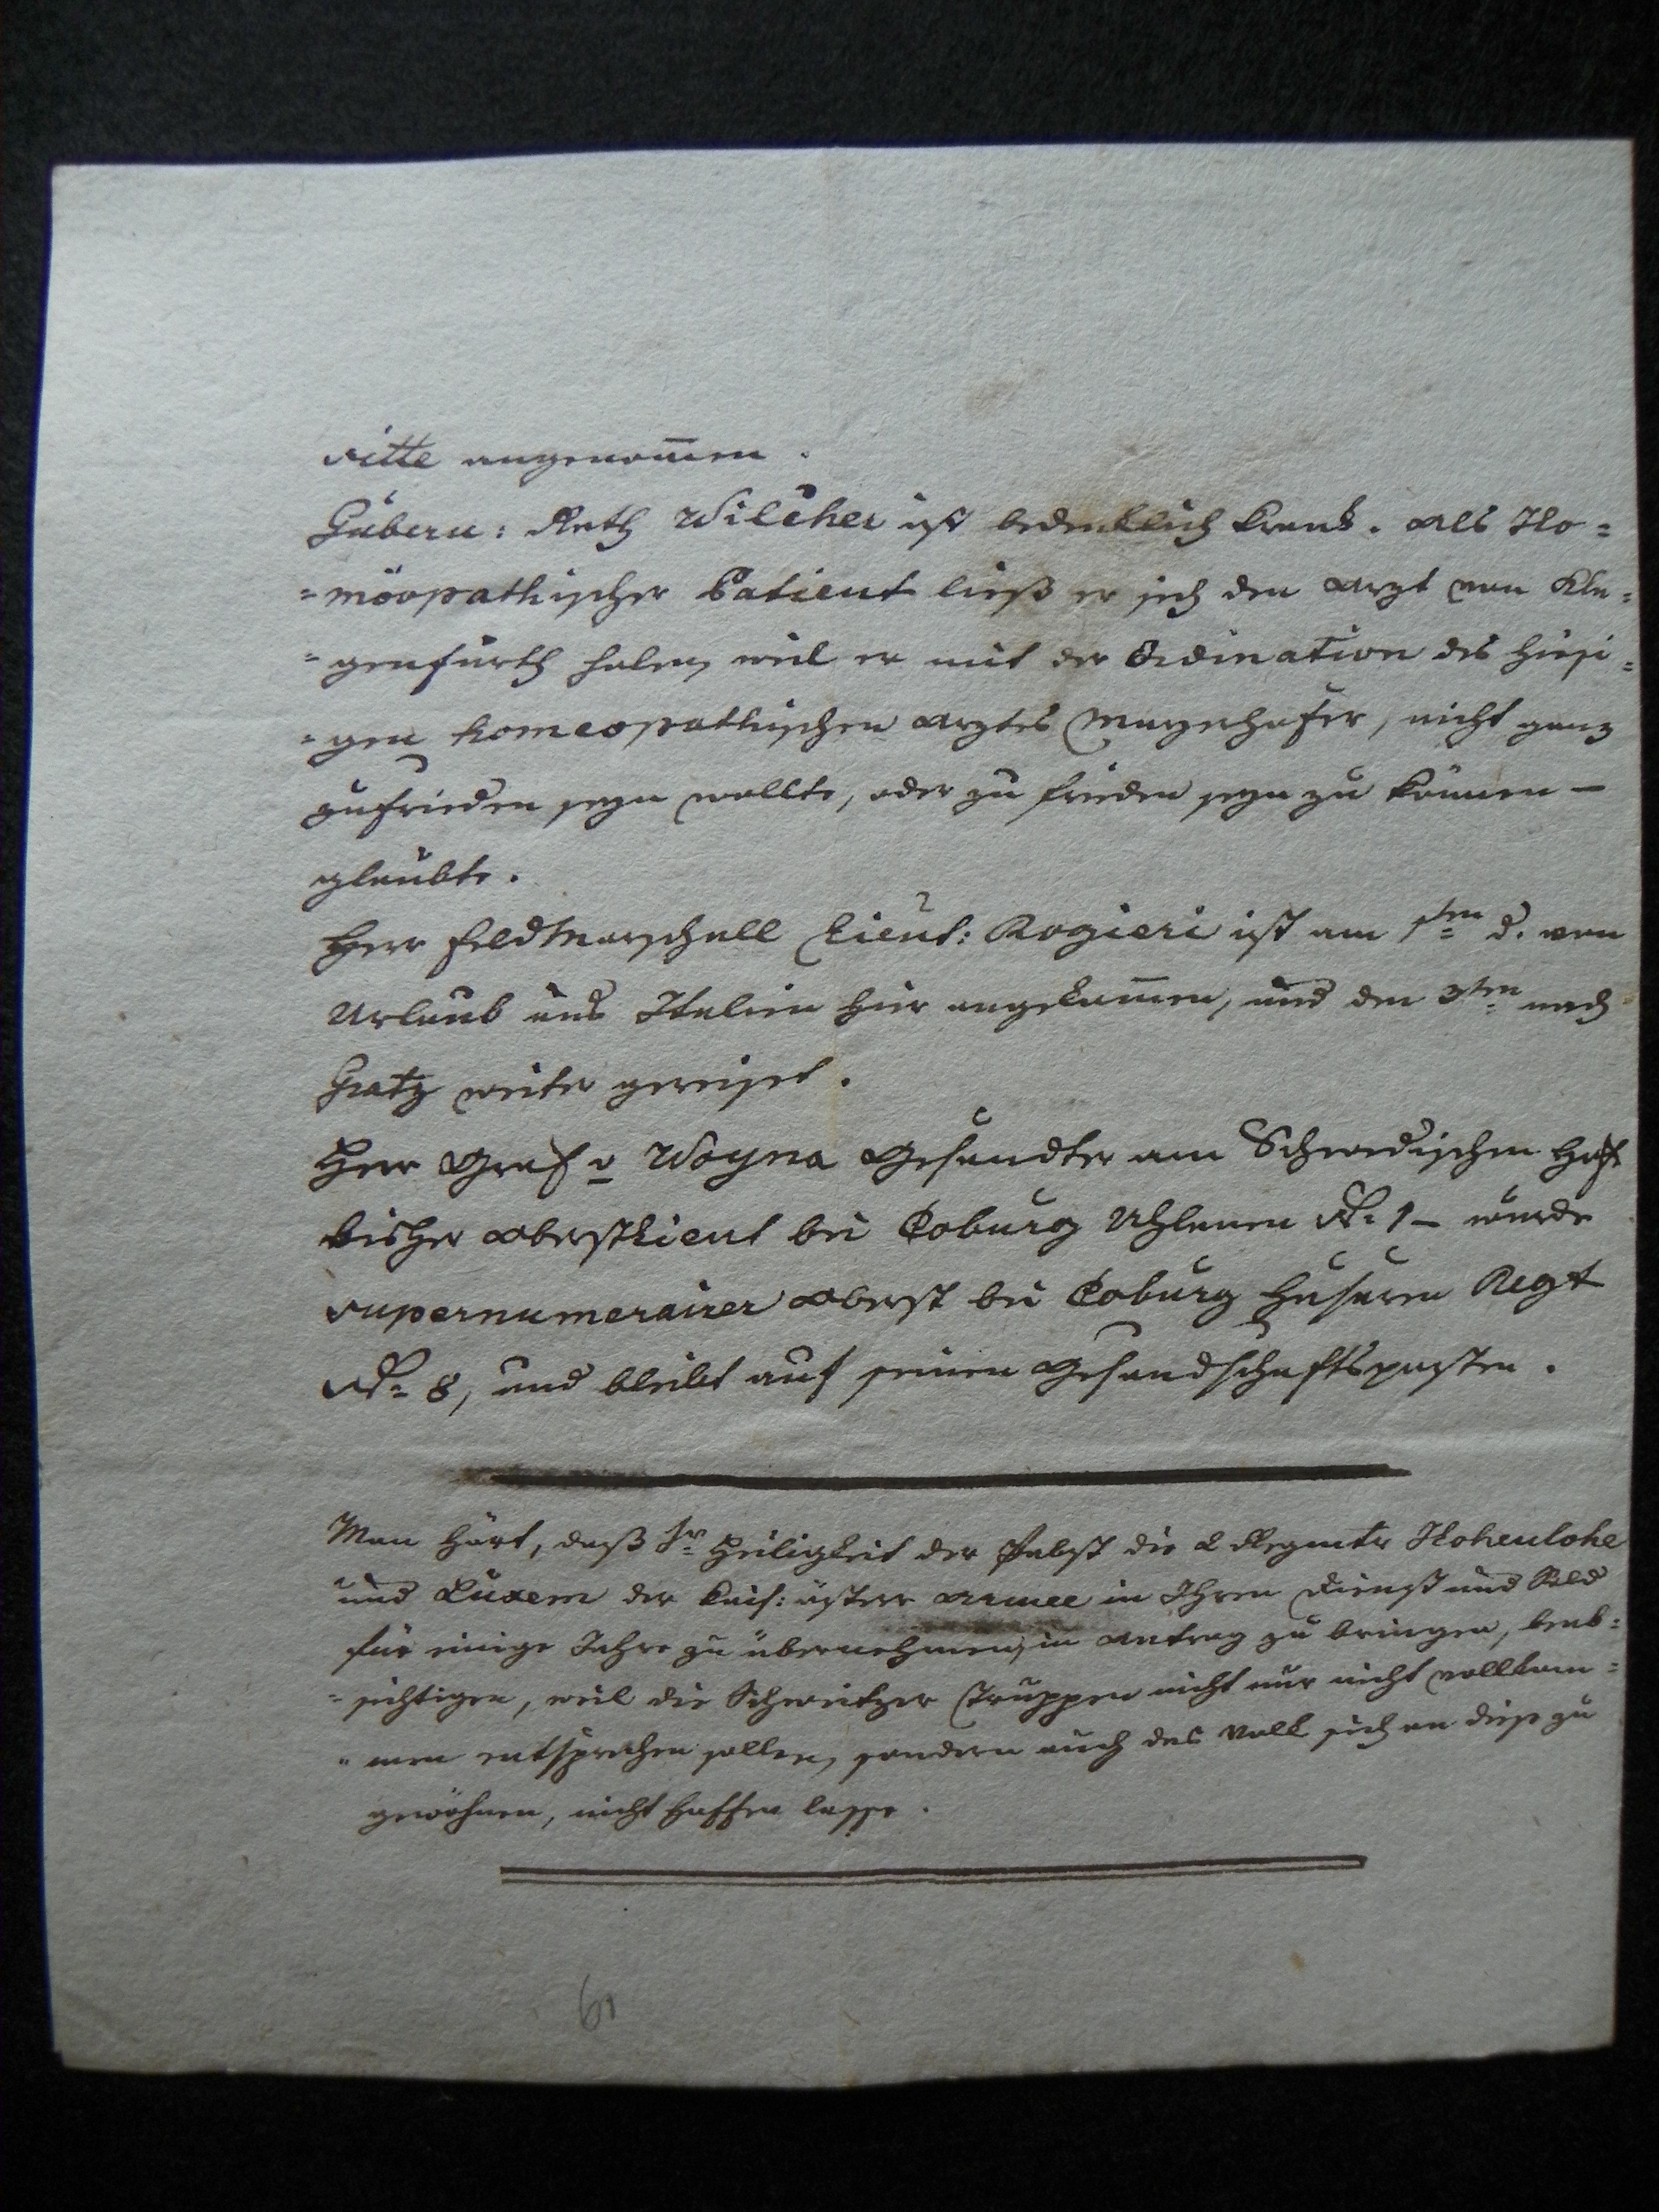 ritte angenom̄en.
Gubern: Rath Wilcher ist bedenklich krank. Als Ho=
=möopathischer Patient ließ er sich den Arzt von Kla=
=genfurth holen, weil er mit der Ordination des hiesi=
=gen homeopathischen Arztes Mayerhofer, nicht ganz
zufrieden seyn wollte, oder zu frieden seyn zu können –
glaubte.
Herr FeldMarschall Lieut: Rogieri ist am 1ten d. von
Urlaub aus Italien hier angekom̄en, und den 3ten nach
Gratz weiter gereiset.
Herr Graf v Woyna Gesandter am Schwedischen Hofe
bisher Oberstlieut bei Coburg Uhlanen No. 1 – wurde
supernumerairer Oberst bei Coburg Husaren Regt
No. 8, und bleibt auf seinen Gesandschaftsposten.
Man hört, daß Sr Heiligkeit der Pabst die 2 Regmtr Hohenlohe
und Luxem der kais: österr Armee in Ihren Dienst und Sold
für einige Jahre zu übernehmen, in Antrag zu bringen, beab=
=sichtigen, weil die Schweitzer Truppen nicht nur nicht vollkom=
=men entsprechen sollen, sondern auch das Volk sich an diese zu
gewöhnen, nicht hoffen lasse.
61